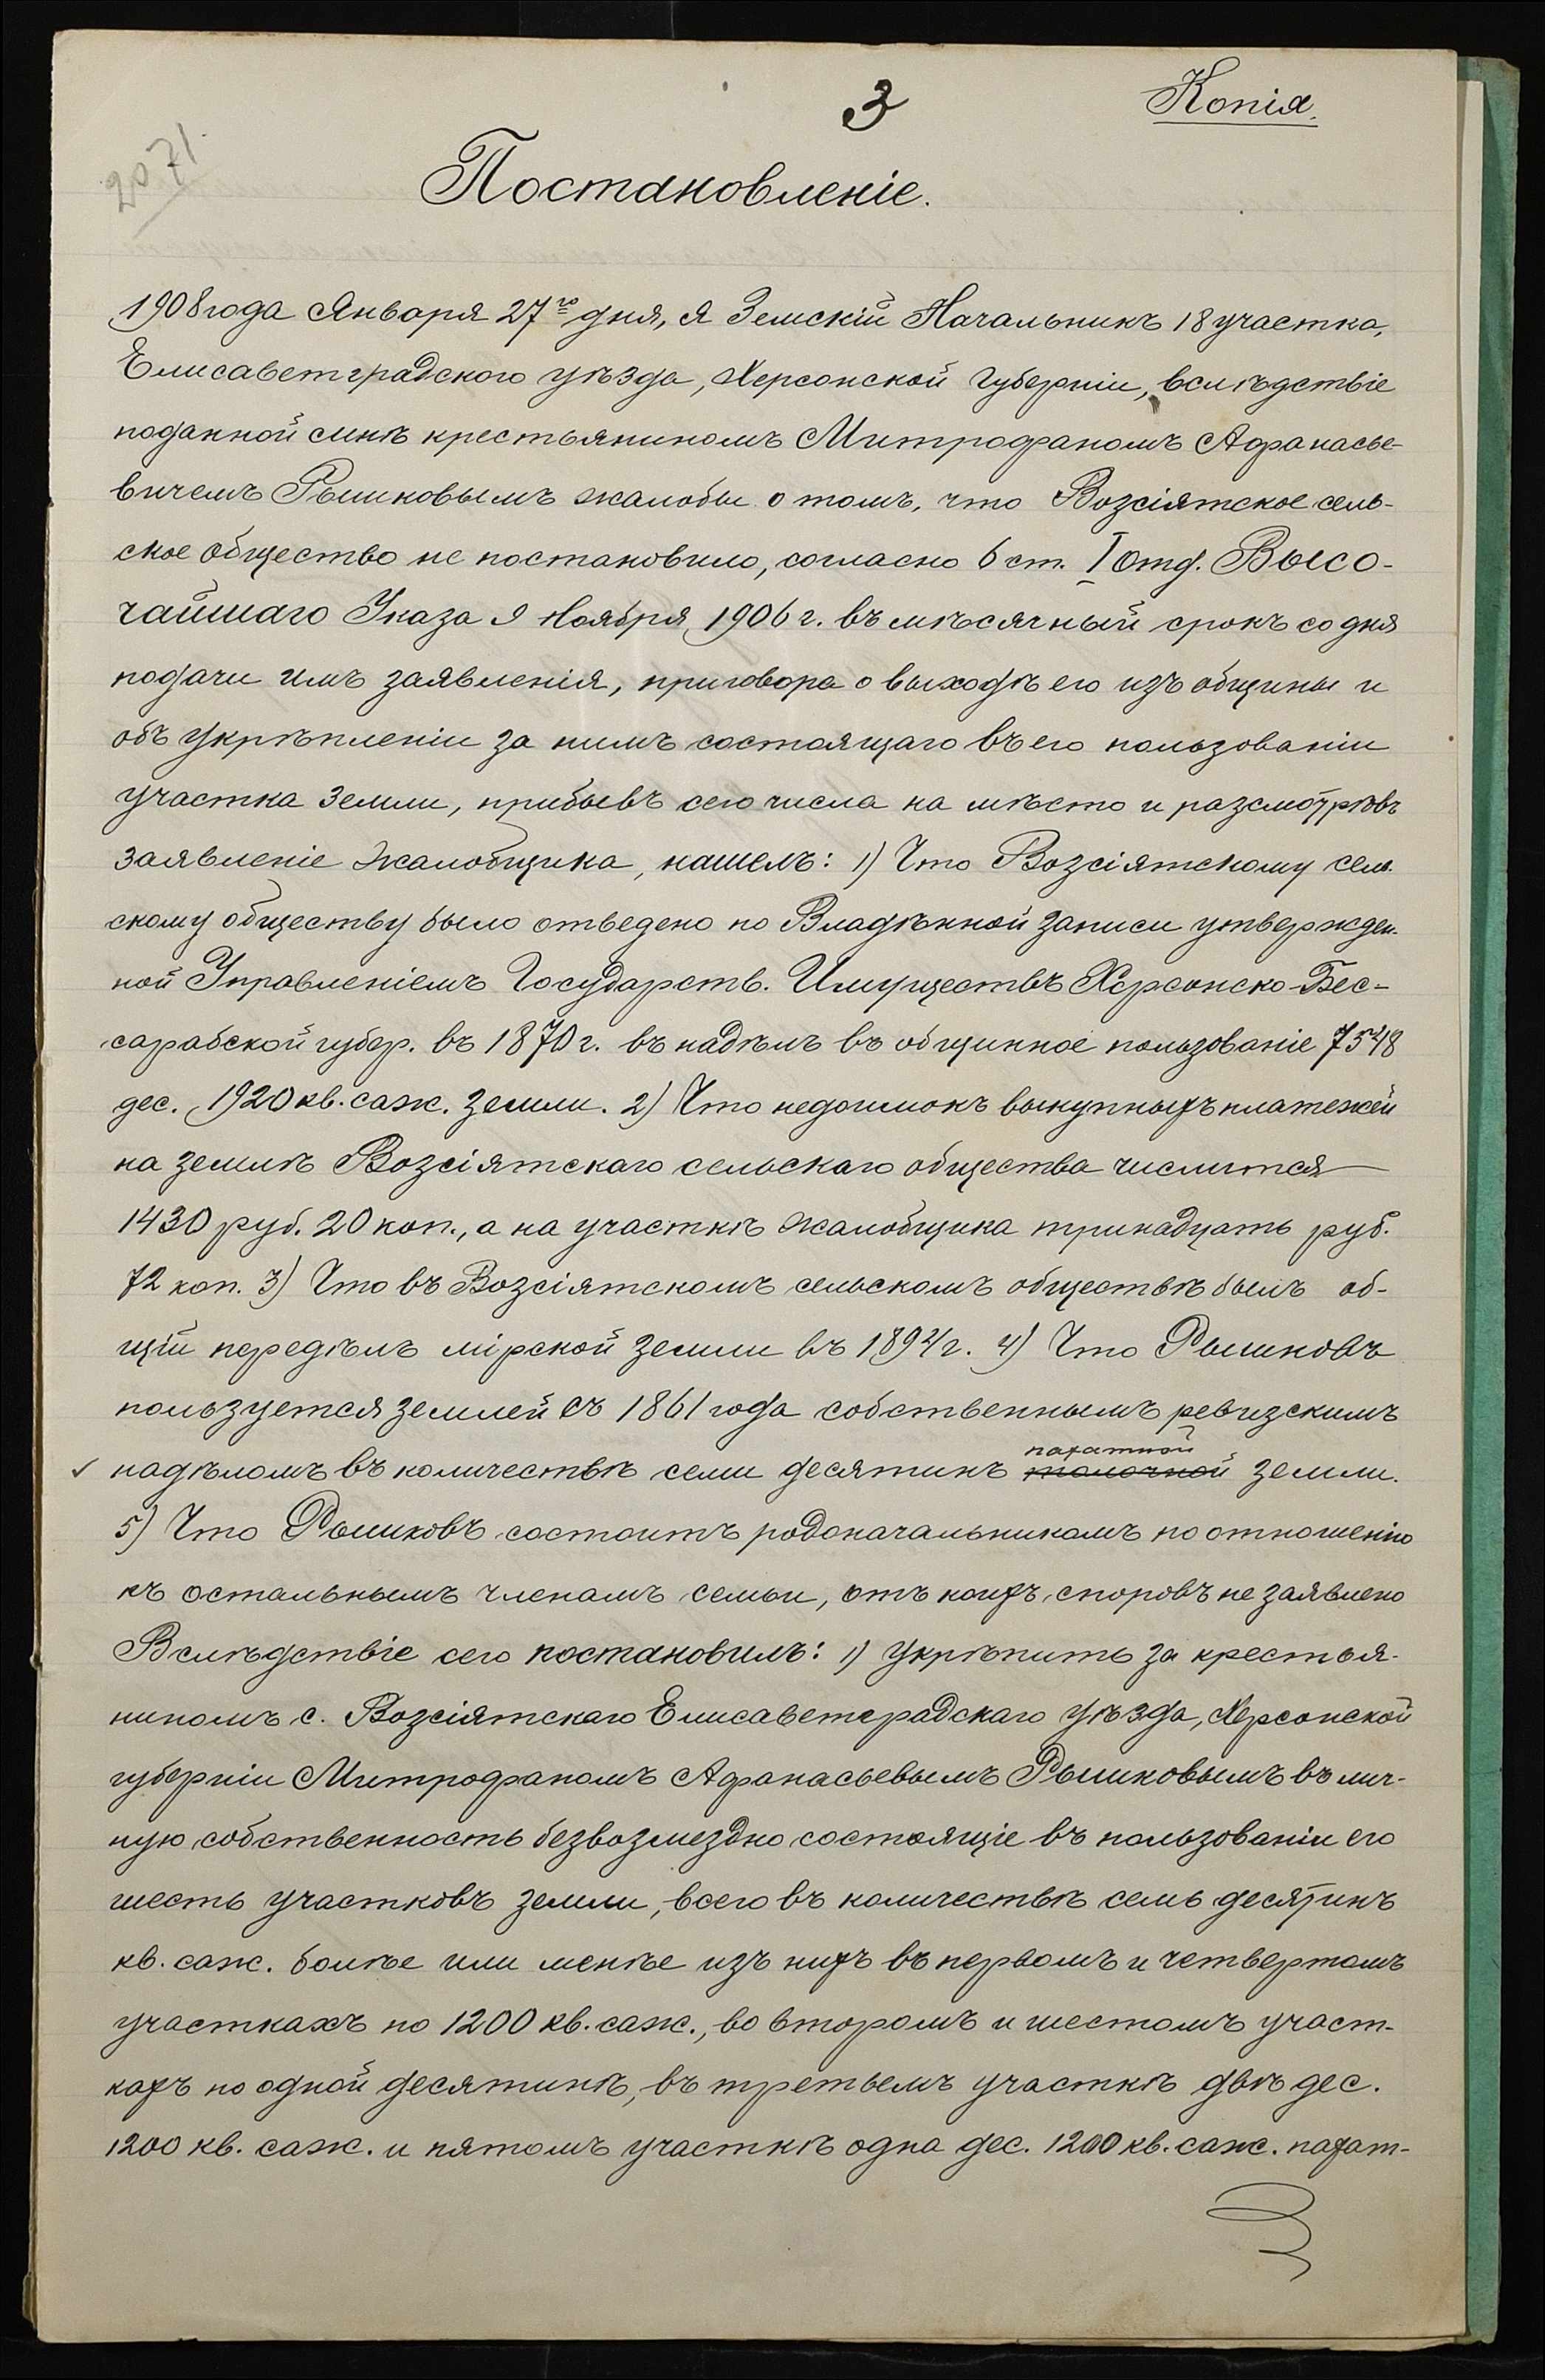 3
Копія.
2071
Постановленіе.
1908 года Января 27го дня, я Земскій Начальникъ 18 участка,
Елисаветградского уѣзда, Херсонской губерніи, вслѣдствіе
поданной мнѣ крестьяниномъ Митрофаномъ Афанасье-
вичемъ Рышковымъ жалобы о томъ, что Возсіятское сель-
ское общество не постановило, согласно 6 ст. I Отд. Высо-
чайшаго Указа 9 Ноября 1906 г. въ мѣсячный срокъ со дня
подачи имъ заявленія, приговора о выходѣ его изъ общины и
объ укрѣпленіи за нимъ состоящаго въ его пользованіи
участка земли, прибывъ сего числа на мѣсто и разсмотрѣвъ
заявленіе жалобщика, нашелъ: 1) Что Возсіятскому сель-
скому обществу было отведено по Владѣнной записи утвержден-
ной Управленіемъ Государств. Имуществъ Херсонско-Бес-
сарабской губер. въ 1870 г. въ надѣлъ въ общинное пользованіе 7548
дес. 1920 кв. саж. земли. 2) Что недоимокъ выкупныхъ платежей
на землѣ Возсіятскаго сельскаго общества числится
1430 руб. 20 коп., а на участкѣ жалобщика тринадцать руб.
72 коп. 3) Что въ Возсіятскомъ сельскомъ обществѣ былъ об-
щій передѣлъ мірской земли въ 1894 г. 4) Что Рышковъ
пользуется землей съ 1861 года собственнымъ ревизскимъ
пахатной
надѣломъ въ количествѣ семи десятинъ толочной земли.
5) Что Рышковъ состоитъ родоначальникомъ по отношенію
къ остальнымъ членамъ семьи, отъ коихъ споровъ не заявлено
Вслѣдствіе сего постановилъ: 1) Укрѣпить за крестья-
ниномъ с. Возсіятскаго Елисаветградскаго уѣзда, Херсонской
губерніи Митрофаномъ Афанасьевымъ Рышковымъ въ лич-
ную собственность безвозмездно состоящіе въ пользованіи его
шесть участковъ земли, всего въ количествѣ семь десятинъ
кв. саж. болѣе или менѣе изъ нихъ въ первомъ и четвертомъ
участкахъ по 1200 кв. саж., во второмъ и шестомъ участ-
кахъ по одной десятинѣ, въ третьемъ участкѣ двѣ дес.
1200 кв. саж. и пятомъ участкѣ одна дес. 1200 кв. саж. пахат-